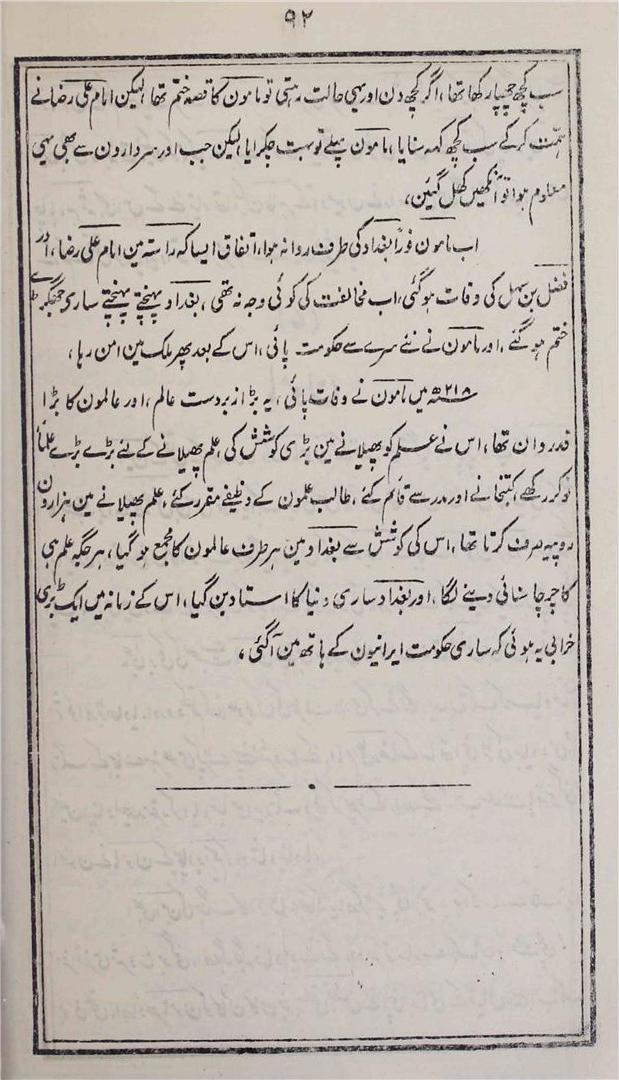 ۹۲
سب کچھ چھپا رکھا تھا، اگر کچھ دن اور یہی حالت رہتی تو مامون کا قصہ ختم تھا لیکن امام علی رضا نے
ہمت کرکے سب کچھ کہہ سنایا، مامون پہلے تو بہت چکرایا لیکن جب اور سردارون سے بھی یہی
معلوم ہوا تو آنکھیں کھل گئین،
اب مامون فوراً بغداد کی طرف روانہ ہوا، اتفاق ایسا کہ راستہ مین امام علی رضا، اور
فضل بن سہل کی وفات ہوگئی، اب مخالفت کی کوئی وجہ نہ تھی، بغداد پہنچتے پہنچتے ساری جھگڑے
ختم ہو گئے، اور مامون نے نئے سرے سے حکومت پائی، اس کے بعد پھر ملک مین امن رہا،
۲۱۸ھ میں مامون نے وفات پائی، یہ بڑا زبردست عالم، اور عالمون کا بڑا
قدردان تھا، اس نے علم کو پھیلانے مین بڑی کوشش کی، علم پھیلانے کے لئے بڑے بڑے علماء
نوکر رکھے، کتبخانے اور مدرسے قائم کئے، طالب علمون کے وظیفے مقرر کئے، علم پھیلانے مین ہزارون
روپیہ صرف کرتا تھا، اس کی کوشش سے بغداد مین ہر طرف عالمون کا مجمع ہو گیا، ہر جگہ علم ہی
کا چرچا سنائی دینے لگا، اور بغداد ساری دنیا کا استاد بن گیا، اس کے زمانہ میں ایک بڑی
خرابی یہ ہوئی کہ ساری حکومت ایرانیون کے ہاتھ مین آگئی،